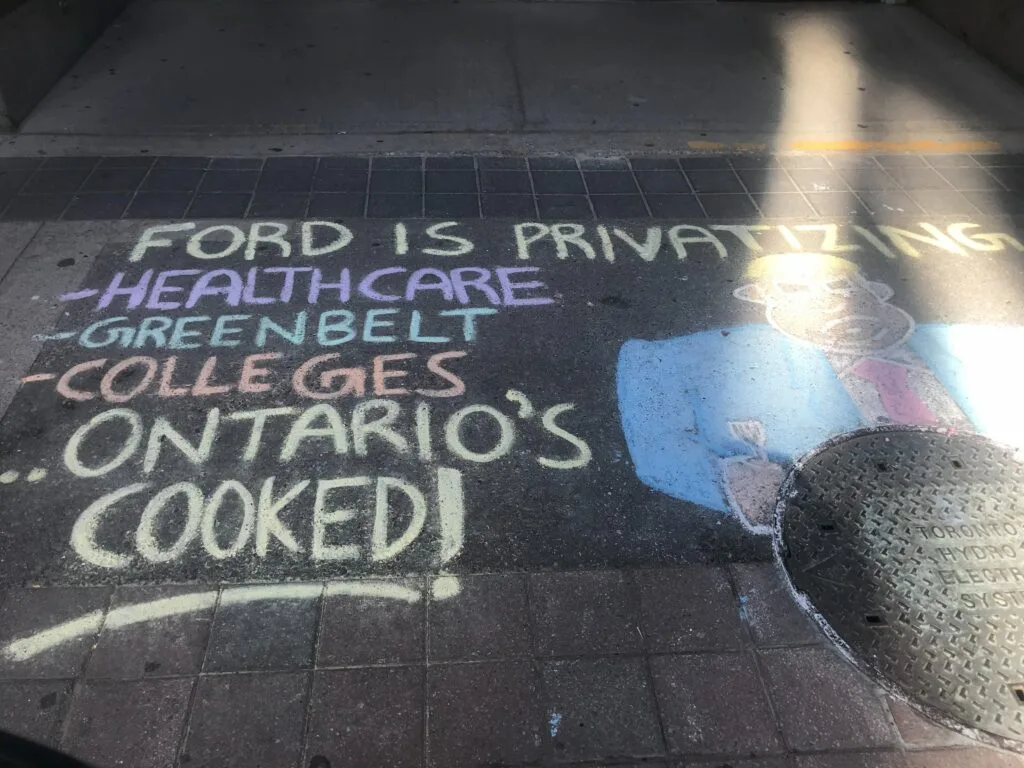 FORD IS PRIVATIZING
-HEALTHCARE
-GREENBELT
-COLLEGES
..ONTARIO'S
COOKED!
TORONTO
HYDRO
ELECTRIC
SYSTEM